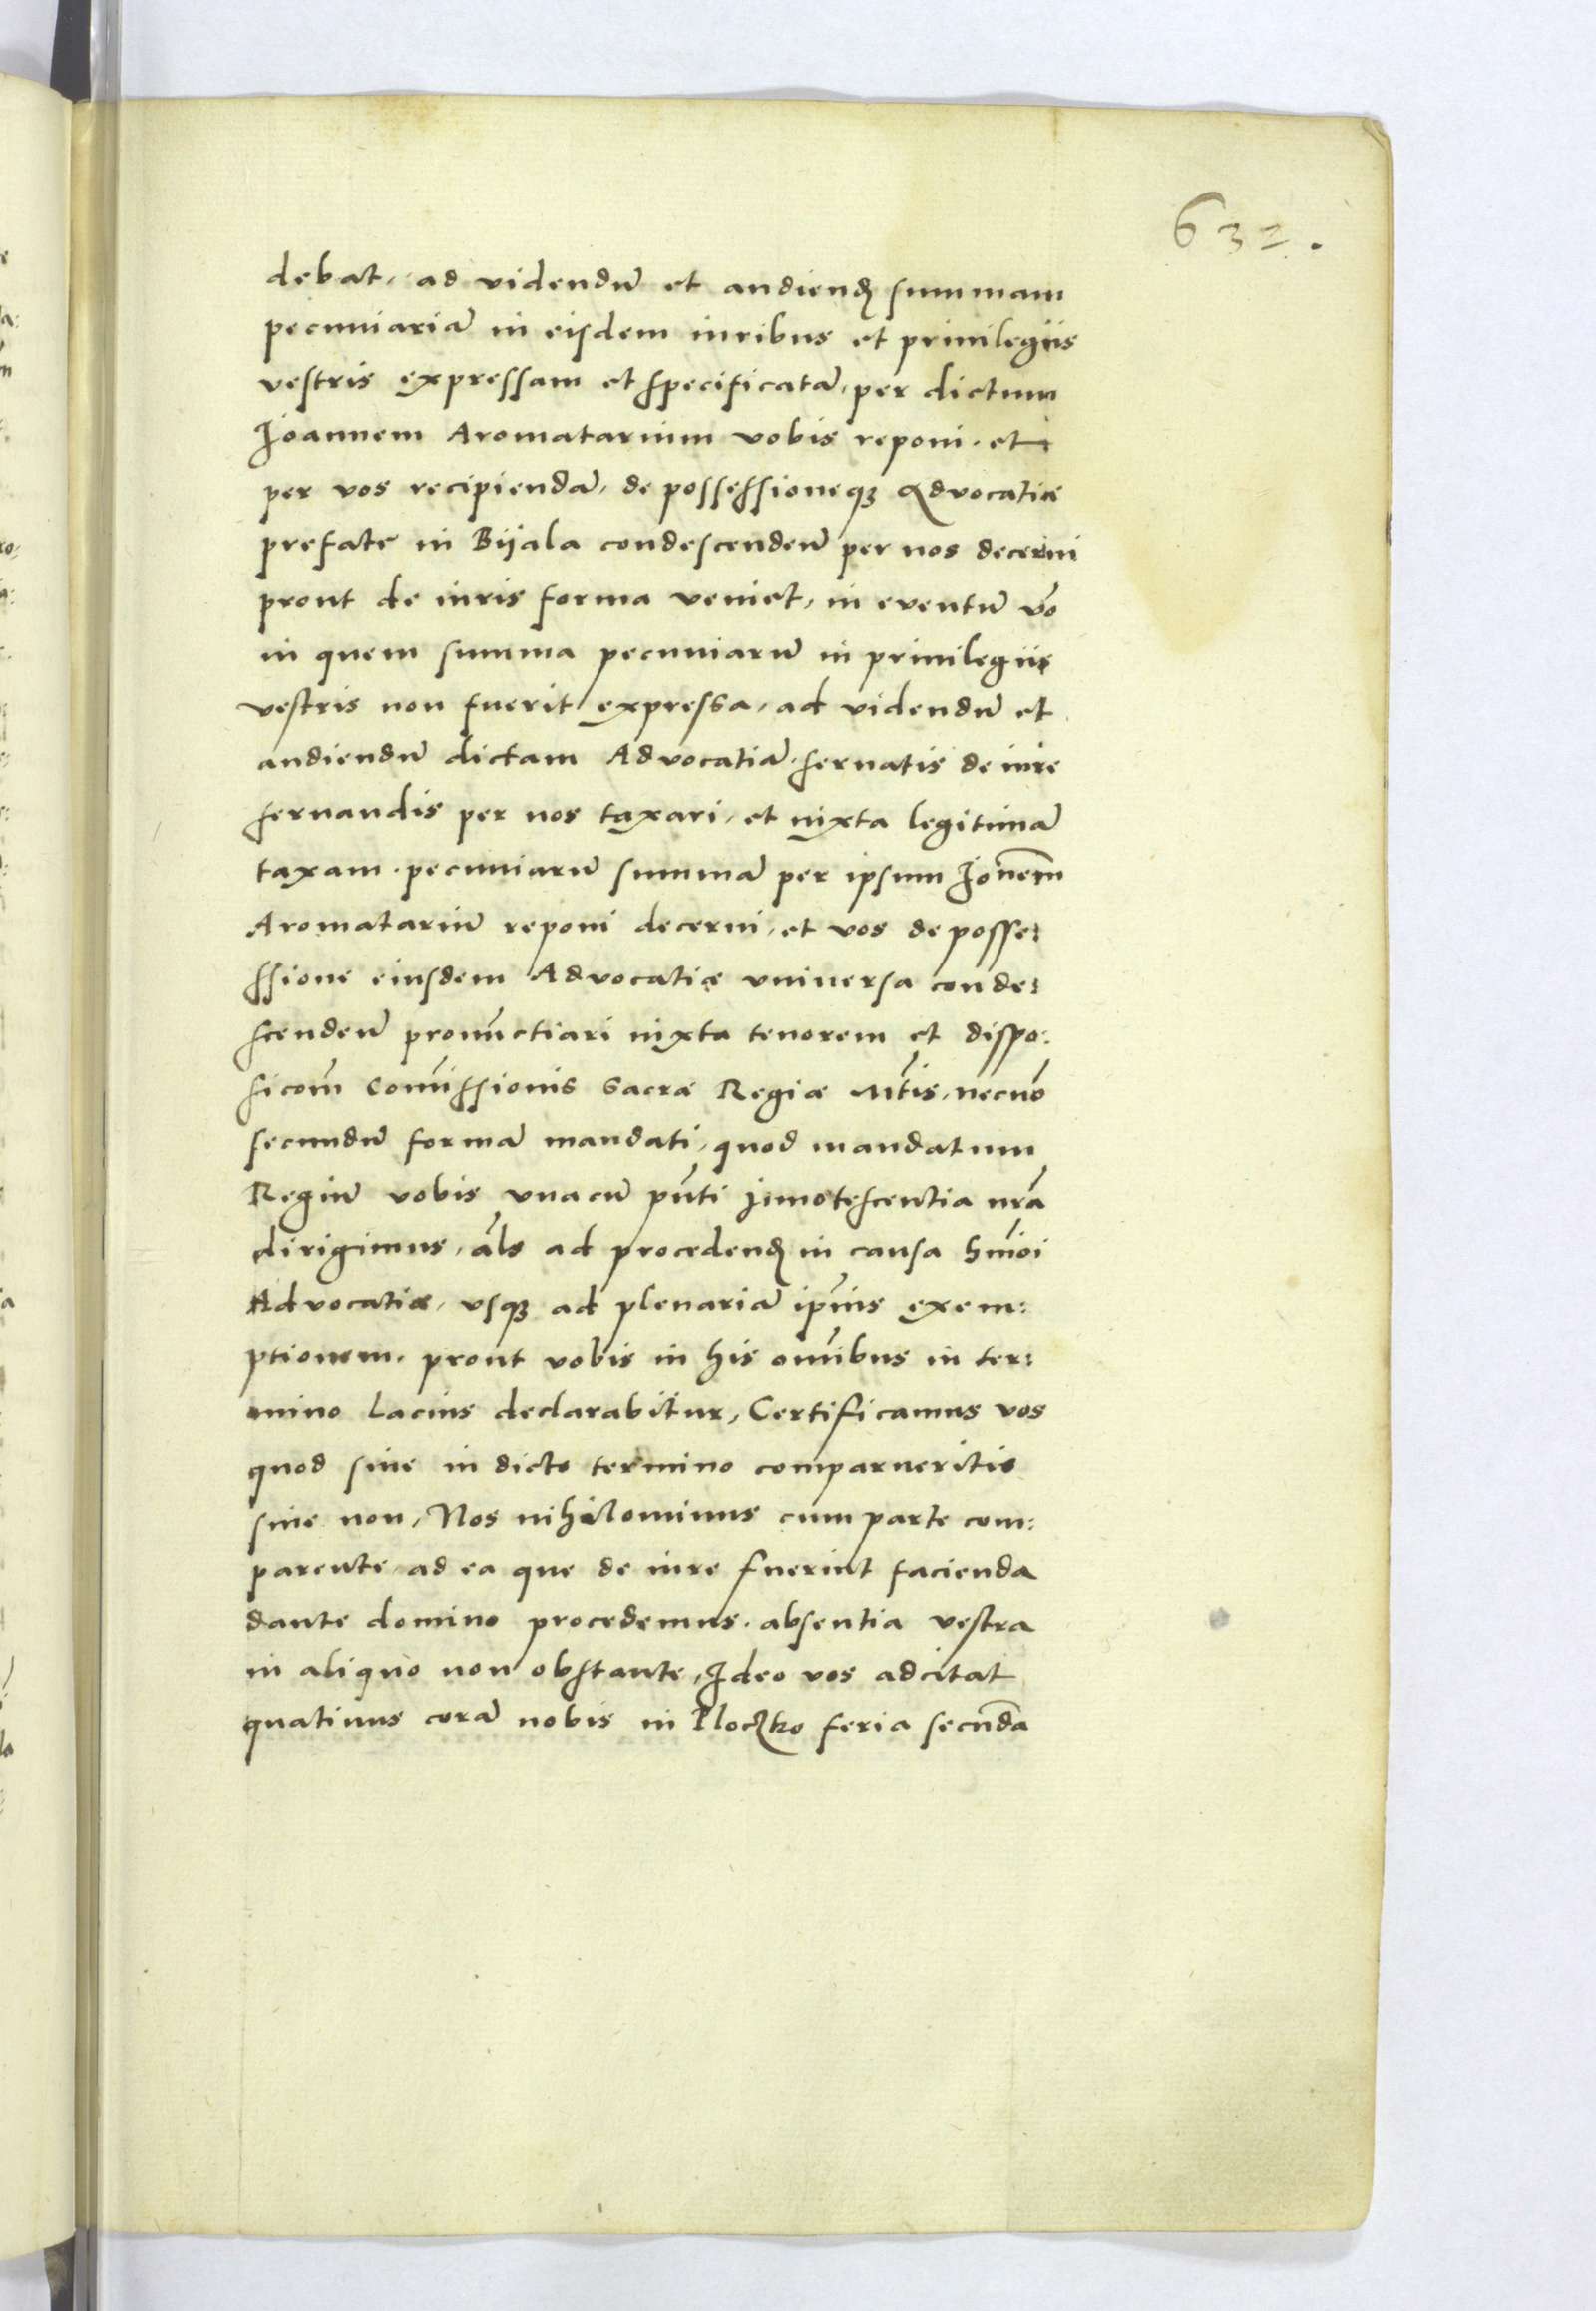 632.
debat, ad videndū et audiendꝫ summam
pecuniariā in eisdem iuribus et priuilegiis
vestris expressam et specificatā, per dictum
Joannem Aromatarium vobis reponi. et
per vos recipiendā, de possessioneqꝫ Advocatiæ
prefate in Bijala condescendeū per nos decerni
prout de iuris forma veniet, in eventū v̄o
in quem summa pecuniarū in priuilegiis
vestris non fuerit expressa, ad videndū et
audiendū dictam Advocatiā, seruatis de iure
seruandis per nos taxari, et iuxta legitimā
taxam. pecuniarū summā per ipsum Jo͞nem
Aromatariū reponi decerni, et vos de posse:
ssione eiusdem Advocatiæ vniuersa conde:
scendeū pronūctiari iuxta tenorem et dispo:
sicom̄ Com̄issionis Sacræ Regiæ Mt̄is, necno͞
secundū formā mandati, quod mandatum
Regiū vobis vnacū pn̄ti Jnnotescentia nr̄a
dirigimus, al̄s ad procedendꝫ in causa hm̄oi
Advocatiæ, vsqꝫ ad plenariā ip̄ius exem:
ptionem. prout vobis in his om̄ibus in ter:
mino Lacius declarabitur, Certificamus vos
quod siue in dicto termino comparueritis
siue non, Nos nihilominus cum parte com:
parente, ad ea que de iure fuerint facienda
dante domino procedemus. absentia vestra
in aliquo non obstante, Jdeo vos adcitat
quatinus corā nobis in Ploczko feria secūda